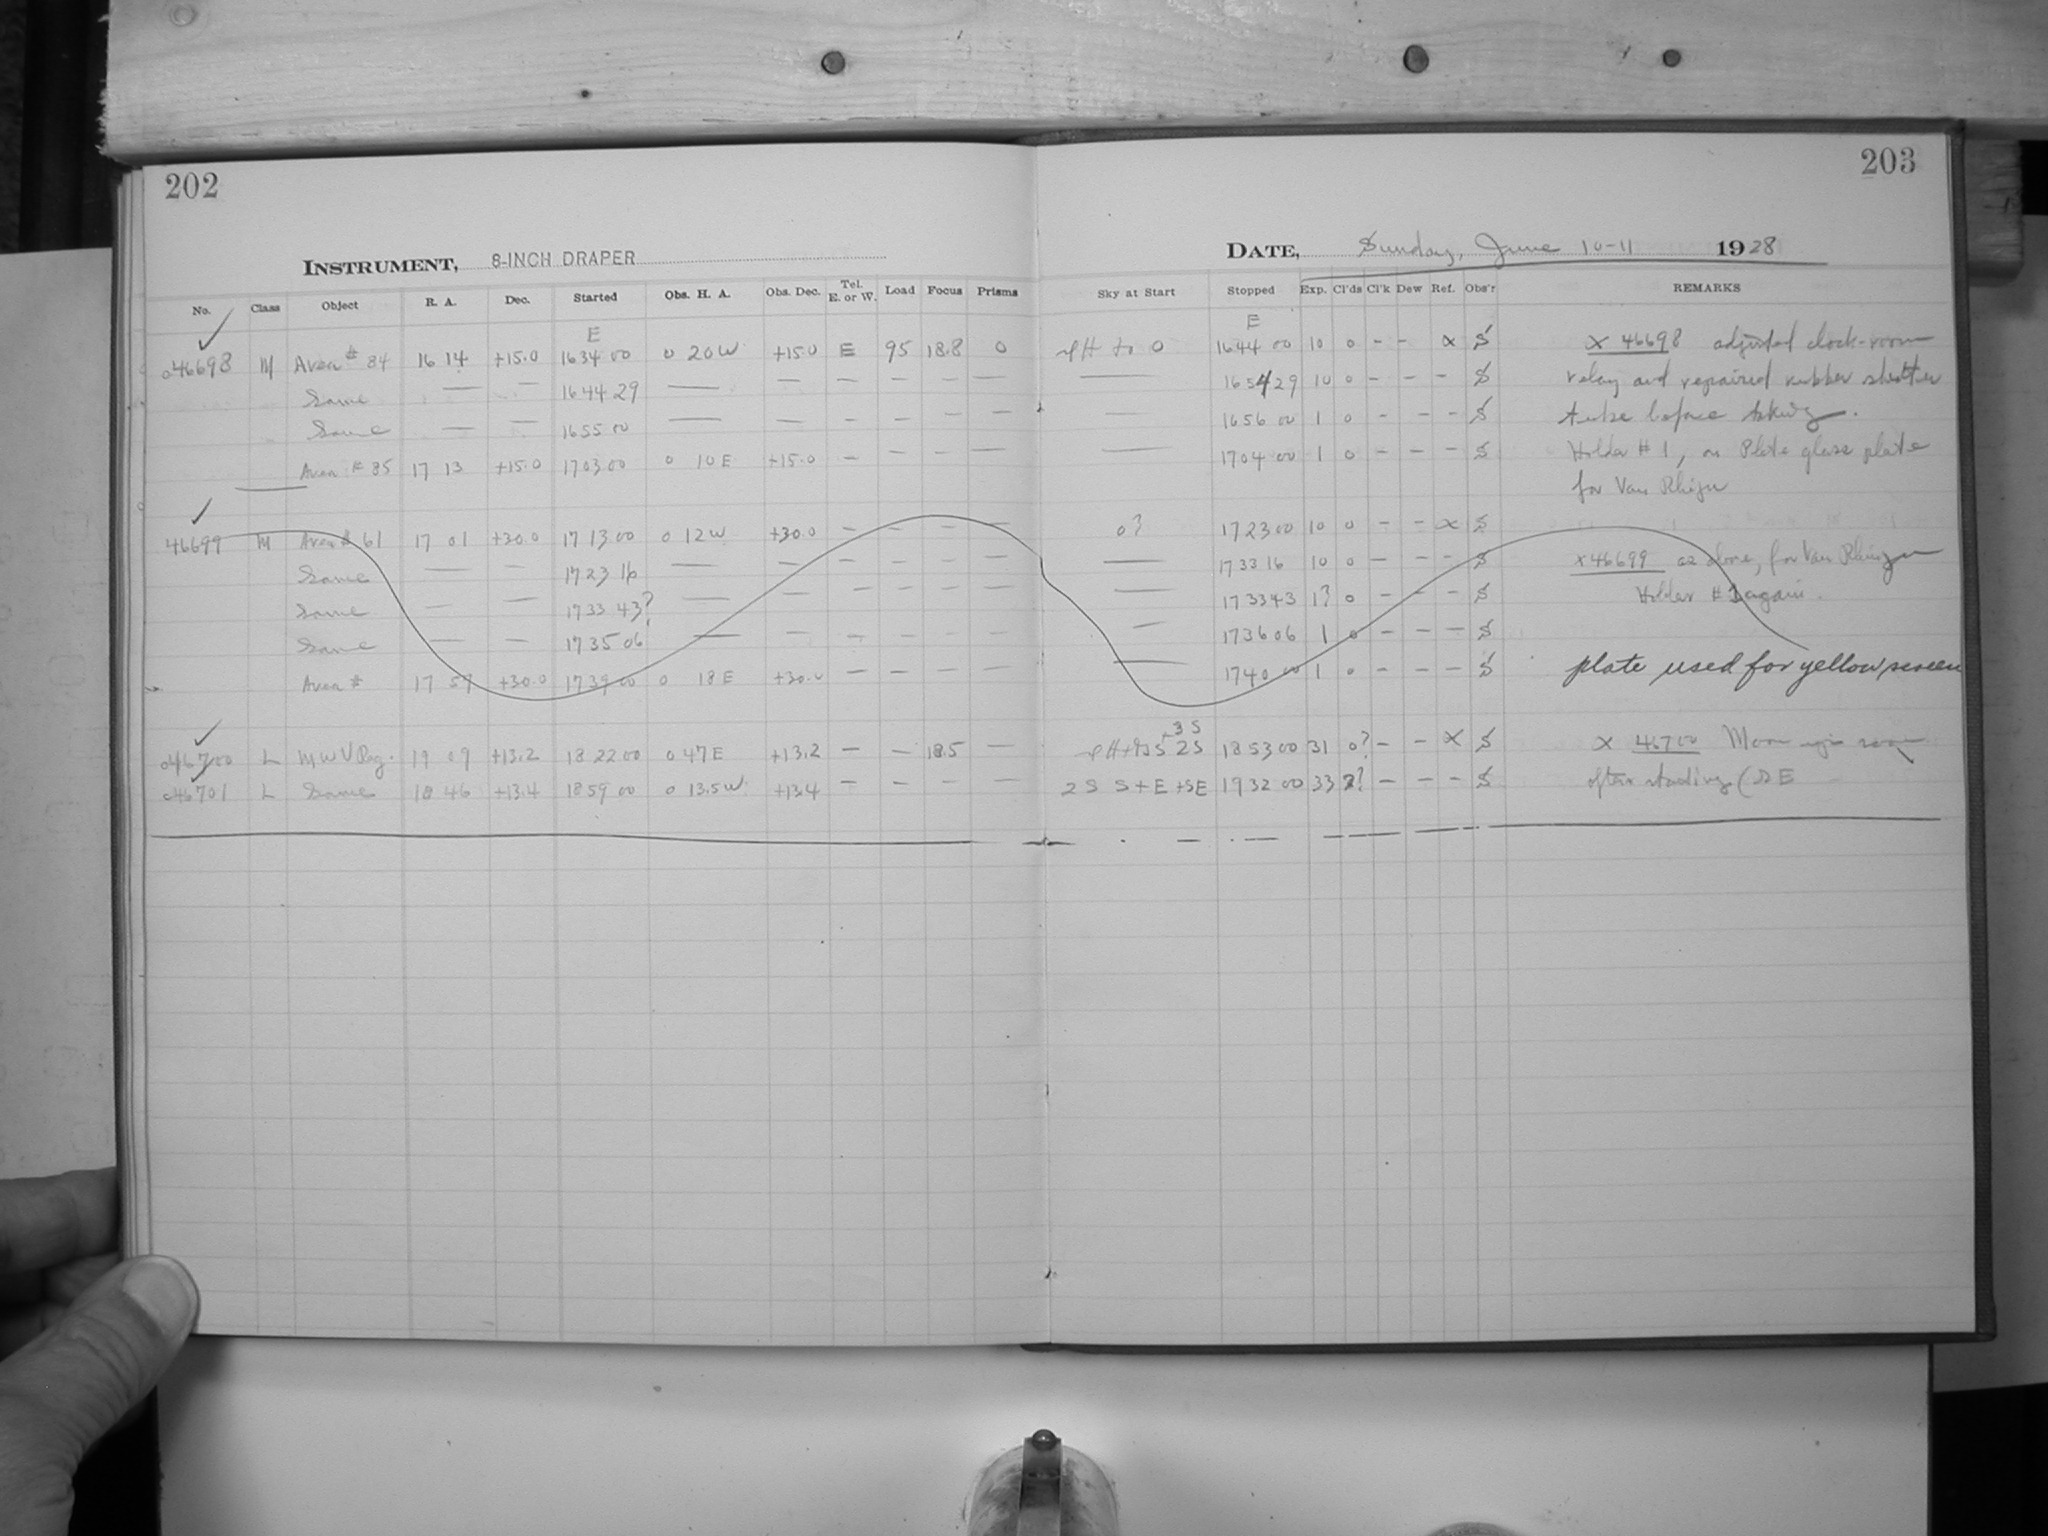 202
203
INSTRUMENT, 8-INCH DRAPER
DATE, Sunday, June 10-11 1928
No. Class Object R. A. Dec. Started Obs. H. A. Obs. Dec. Tel. E. or W. Load Focus Prisms Sky at Start Stopped Exp. Cl'ds Cl'k Dew Ref. Obs'r REMARKS
E E
46698 M Area # 84 16 14 +15.0 16 34 00 0 20 W +15.0 E 95 18.8 0 to 0 16 44 00 10 0 - - x S x 46698 adjusted clock-room
Same — — 16 44 29 — — — — — — — 16 54 29 10 0 - - - S relay and repaired rubber shutter
Same — — 16 55 00 — — — — — — — 16 56 00 1 0 - - - S tube before taking.
Area # 85 17 13 +15.0 17 03 00 0 10 E +15.0 — — — — — 17 04 00 1 0 - - - S Holder # 1, on Plate glass plate
for Van Rhijn
46699 M Area # 61 17 01 +30.0 17 13 00 0 12 W +30.0 — — — — 0? 17 23 00 10 0 - - x S
Same — — 17 23 16 — — — — — — — 17 33 16 10 0 - - - S x 46699 as above, for Van Rhijn
Same — — 17 33 43? — — — — — — — 17 33 43 1? 0 - - - S Holder # 1 again.
Same — — 17 35 06 — — — — — — — 17 36 06 1 0 - - - S
Area # 17 57 +30.0 17 39 00 0 18 E +30.0 — — — — — 17 40 00 1 0 - - - S plate used for yellow screen
+3 S
46700 L M W V Reg. 19 09 +13.2 18 22 00 0 47 E +13.2 — — 18.5 — 2S 18 53 00 31 0? - - x S x 46700 Moon
46701 L Same 18 46 +13.4 18 59 00 0 13.5 W +13.4 — — — — 2 S S + E + SE 19 32 00 33 2? - - - S after starting (